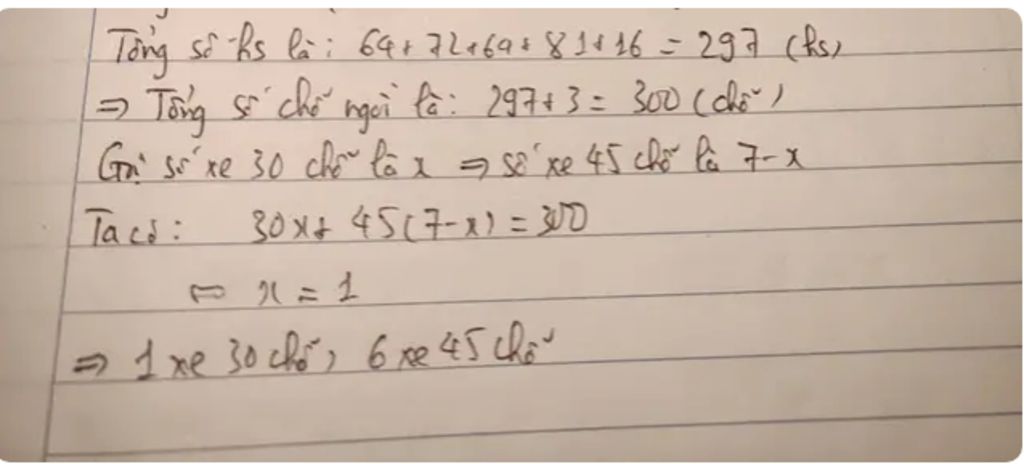 Tổng số hs là: 64+72+64+81+16 = 297 (hs)
⇒ Tổng số chỗ ngồi là: 297+3 = 300 (chỗ)
Gọi số xe 30 chỗ là x ⇒ số xe 45 chỗ là 7-x
Ta có: 30x+ 45(7-x) = 300
⇔ x = 1
⇒ 1 xe 30 chỗ, 6 xe 45 chỗ